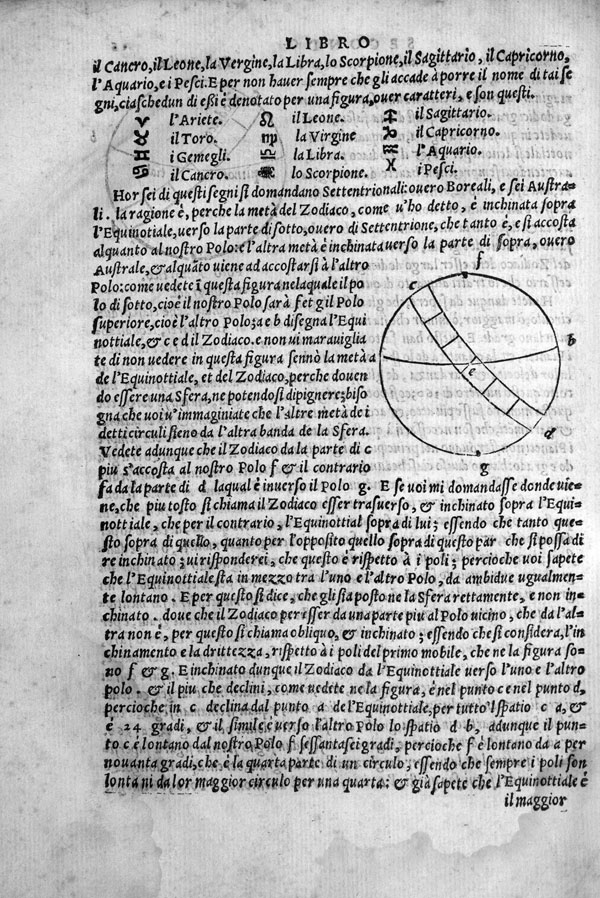 LIBRO
il Cancro, il Leone, la Vergine, la Libra, lo Scorpione, il Sagittario, il Capricorno,
l'Aquario, e i Pesci. E per non hauer sempre che gli accade à porre il nome di tai se
gni, ciaschedun di eßi è denotato per una figura, ouer caratteri, e son questi.
♈ l'Ariete. ♌ il Leone. ♐ il Sagittario.
♉ il Toro. ♍ la Virgine ♑ il Capricorno.
♊ i Gemegli. ♎ la Libra. ♒ l'Aquario.
♋ il Cancro. ♏ lo Scorpione. ♓ i Pesci.
Hor sei di questi segni si domandano Settentrionali: ouero Boreali, e sei Austra-
li. la ragione è, perche la metà del Zodiaco, come u'ho detto, è inchinata sopra
l'Equinotiale, uerso la parte di sotto, ouero di Settentrione, che tanto è, e si accosta
alquanto al nostro Polo: e l'altra metà è inchinata uerso la parte di sopra, ouero
Australe, & alquãto uiene ad accostarsi à l'altro
Polo: come uedete ĩ questa figura ne laquale il po
lo di sotto, cioè il nostro Polo sarà f et g il Polo
superiore, cioè l'altro Polo; a e b disegna l'Equi
nottiale, & c e d il Zodiaco. e non ui marauiglia
te di non uedere in questa figura sennò la metà
de l'Equinottiale, et del Zodiaco, perche douen
do essere una Sfera, ne potendosi dipignere; biso
gna che uoi u'immaginiate che l'altre metà dei
detti circuli sieno da l'altra banda de la Sfera.
Vedete adunque che il Zodiaco da la parte di c
piu s'accosta al nostro Polo f & il contrario
fa da la parte di d laqual è inuerso il Polo g. E se uoi mi domandasse donde uie-
ne, che piu tosto si chiama il Zodiaco esser trasuerso, & inchinato sopra l'Equi-
nottiale, che per il contrario, l'Equinottial sopra di lui; essendo che tanto que-
sto sopra di quello, quanto per l'opposito quello sopra di questo par che si possa di
re inchinato; ui risponderei, che questo è rispetto à i poli; percioche uoi sapete
che l'Equinottiale sta in mezzo tra l'uno e l'altro Polo, da ambidue ugualmen-
te lontano. E per questo si dice, che gli sia posto ne la Sfera rettamente, e non in-
chinato. doue che il Zodiaco per esser da una parte piu al Polo uicino, che da l'al-
tra non è, per questo si chiama obliquo, & inchinato; essendo che si considera, l'in
chinamento e la drittezza, rispetto à i poli del primo mobile, che ne la figura so-
no f & g. E inchinato dunque il Zodiaco da l'Equinottiale uerso l'uno e l'altro
polo. & il piu che declini, come uedete ne la figura, è nel punto c e nel punto d,
percioche in c declina dal punto a de l'Equinottiale, per tutto l spatio c a, &
è 24 gradi, & il simile è uerso l'altro Polo lo spatio d b, adunque il pun-
to c è lontano dal nostro Polo f sessantasei gradi, percioche f è lontano da a per
nouanta gradi, che è la quarta parte di un circulo, essendo che sempre i poli son
lontani da lor maggior circulo per una quarta: & già sapete che l'Equinottiale è
il maggior
f
c
b
a
e
d
g